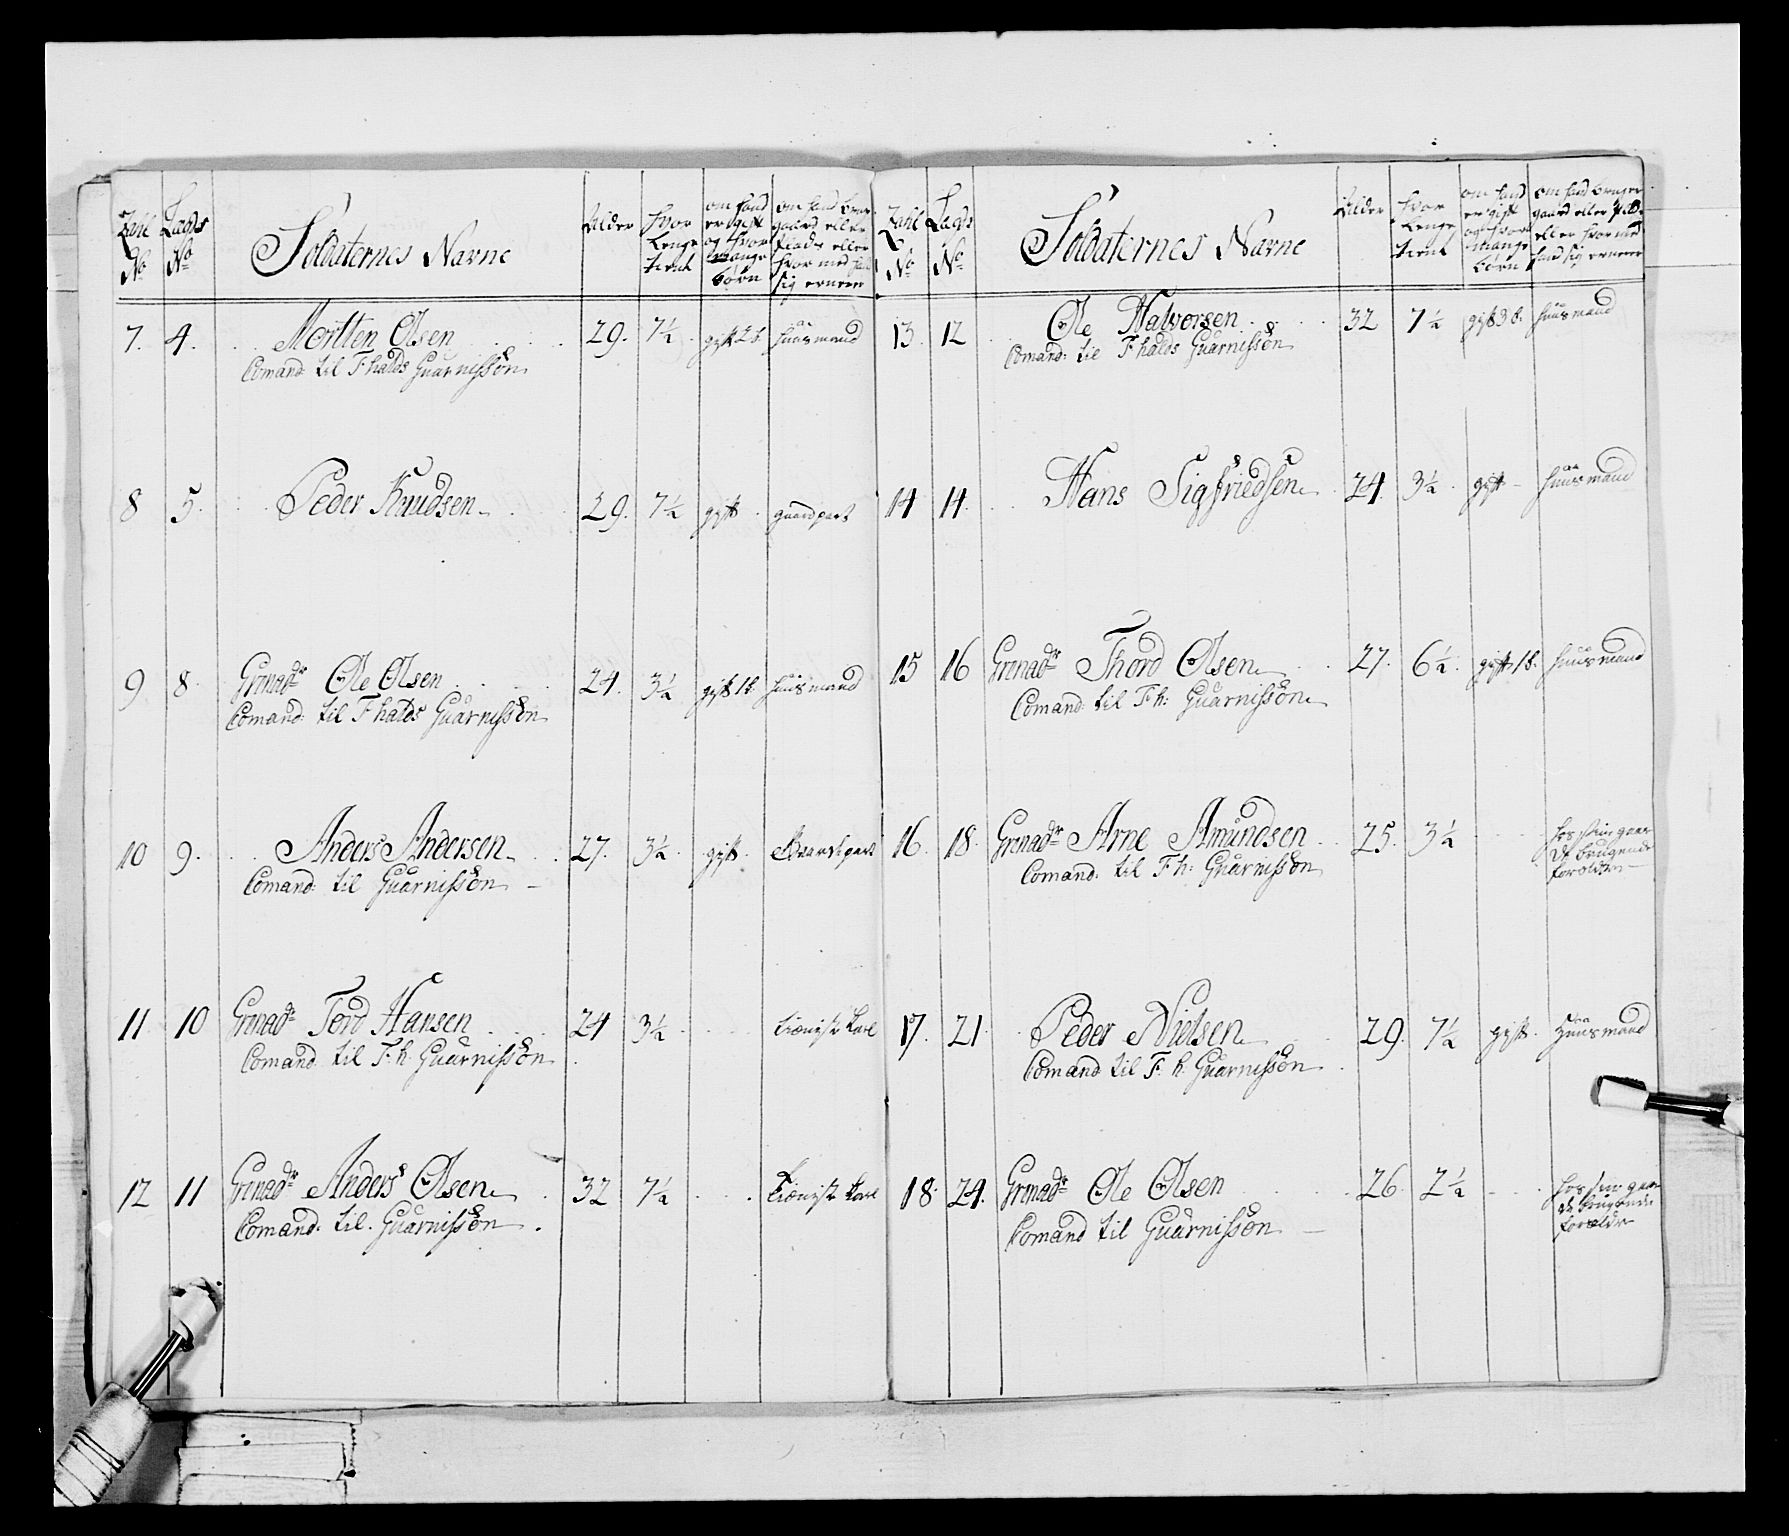 Zahl No
Lægds No
Soldaternes Navne
Alder
hvor Lenge tient
om hand er gift og hvor mange børn
om hand bruger gaard eller Plads eller hvor med hand sig ernerer
7. 4. Mortten Olsen 29. 7½ gift 2 b. huusmand
Comand: til Fhalds Guarnisson
8 5. Peder Knudsen 29. 7½ gift gaardpart
9 8. Grenadr Ole Olsen 24. 3½ gift 1 b. huusmand
Comand: til Fhalds Guarnisson
10 9. Anders Andersen 27. 3½ gift
Comand: til Guarnisson
11. 10 Grenadr Tord Hansen 24 3½ tieniste Karl
Comand til F: h: Guarnisson
12 11 Grenadr Anders Olsen 32 7½ tieniste Karl
Comand: til Guarnisson
Zahl No
Lægds No
Soldaternes Navne
Alder
hvor Lenge tient
om hand er gift og hvor mange børn
om hand bruger gaard eller Plds eller hvor med hand sig ernerer
13. 12 Ole Halvorsen 32 7½ gift 3 b. huusmand
Comand: til Fhalds Guarnisson
14 14. Hans Sigfriedsen 24. 3½ gift huusmand
15 16 Grenadr Thord Olsen 27. 6½ gift 1 b. huusmand
Comand: til Fh: Guarnisson
16. 18. Grenadr Arne Amundsen 25. 3½ hos sine gaar
d brugende
forældre
Comand: til Fh: Guarnisson
17. 21. Peder Nielsen 29. 7½ gift Huusmand
Comand til F: h: Guarnisson
18. 24. Grenadr Ole Olsen 26. 2½ hos sine gaar
d brugende
forældre
Comand til Guarnisson